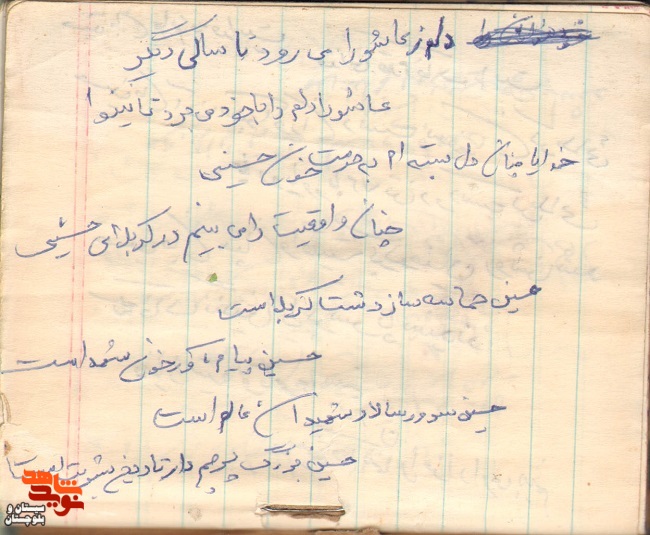 دلم ز عاشورا می رود تا سالی دیگر
عاشورا دلم را با خود می برد تا نینوا
خدایا چنان دل بسته ام به حرمت خون حسینی
چنان واقعیت را می بینم در کربلای حسینی
حسین حماسه ساز دشت کربلا است
حسین پیام آور خون شهدا است
حسین سرور سالار شهیدان عالم است
حسین بزرگ پرچم دار تاریخ بشریت است
نوید شاهد
سیستان و بلوچستان